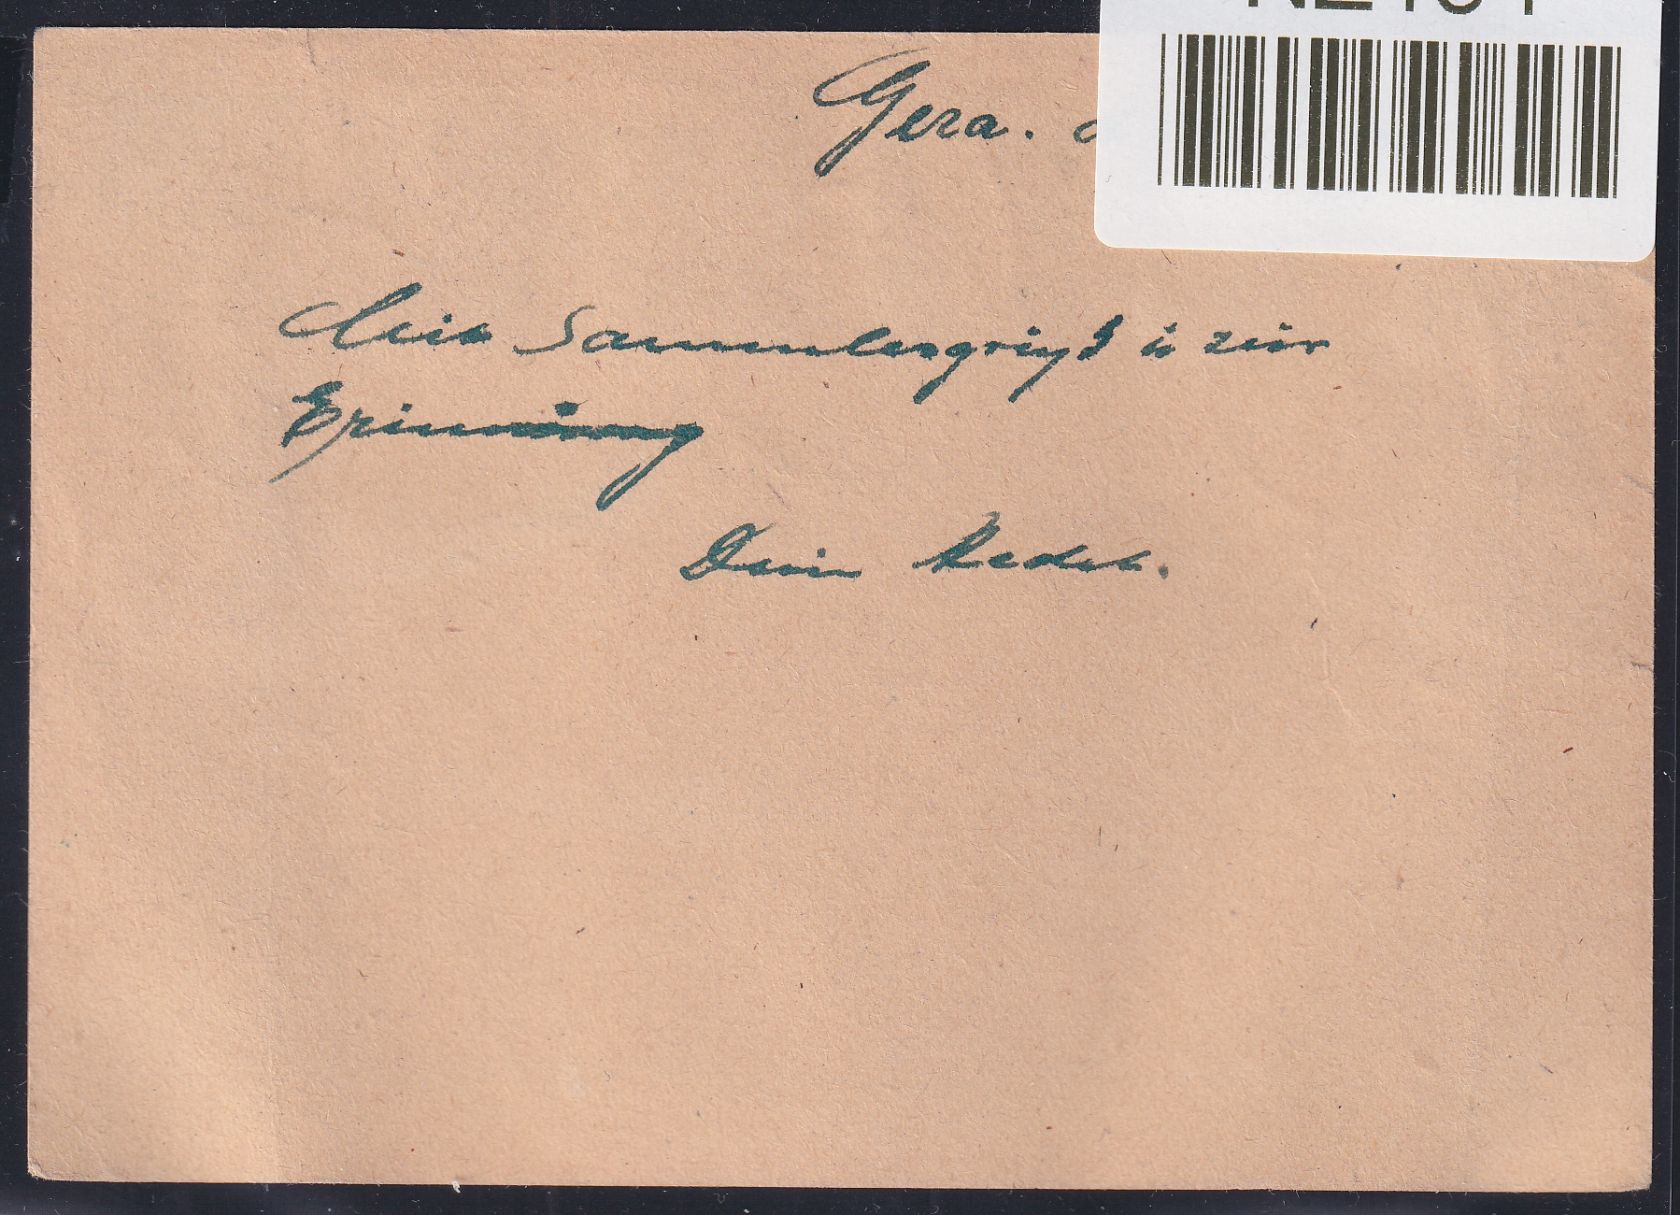 Gera. d
Mit Sammlergruß u zur
Erinnerung
Dein